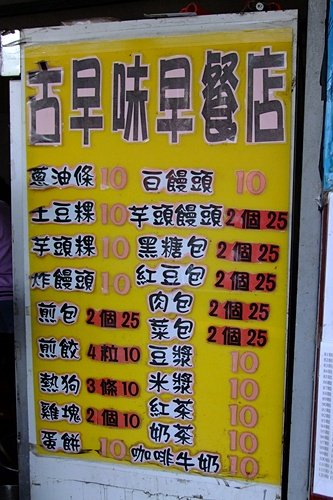 古早味早餐店
蔥油條 10
土豆粿 10
芋頭粿 10
炸饅頭 10
煎包 2個25
煎餃 4粒10
熱狗 3條10
雞塊 2個10
蛋餅 10
白饅頭 10
芋頭饅頭 2個25
黑糖包 2個25
紅豆包 2個25
肉包 2個25
菜包 2個25
豆漿 10
米漿 10
紅茶 10
奶茶 10
咖啡牛奶 10